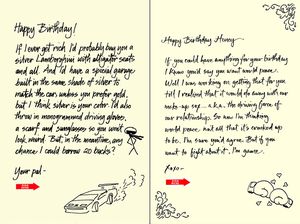 Happy Birthday!
If I ever get rich I'd probably buy you a
silver Lamborghini with alligator seats
and all. And I'd have a special garage
built in the same shade of silver to
match the car, unless you prefer gold,
but I think silver is your color. I'd also
throw in monogrammed driving gloves,
a scarf and sunglasses so you won't
look weird. But, in the meantime, any
chance I could borrow 20 bucks?
Your pal -
Happy Birthday Honey -
If you could have anything for your birthday
I know you'd say you want world peace.
Well I was working on getting that for you
till I realized that it would do away with our
make-up sex... a.k.a. the driving force of
our relationship. So now I'm thinking
world peace, not all that it's cracked up
to be. I'm sure you'd agree. But if you
want to fight about it, I'm game.
Xoxo -